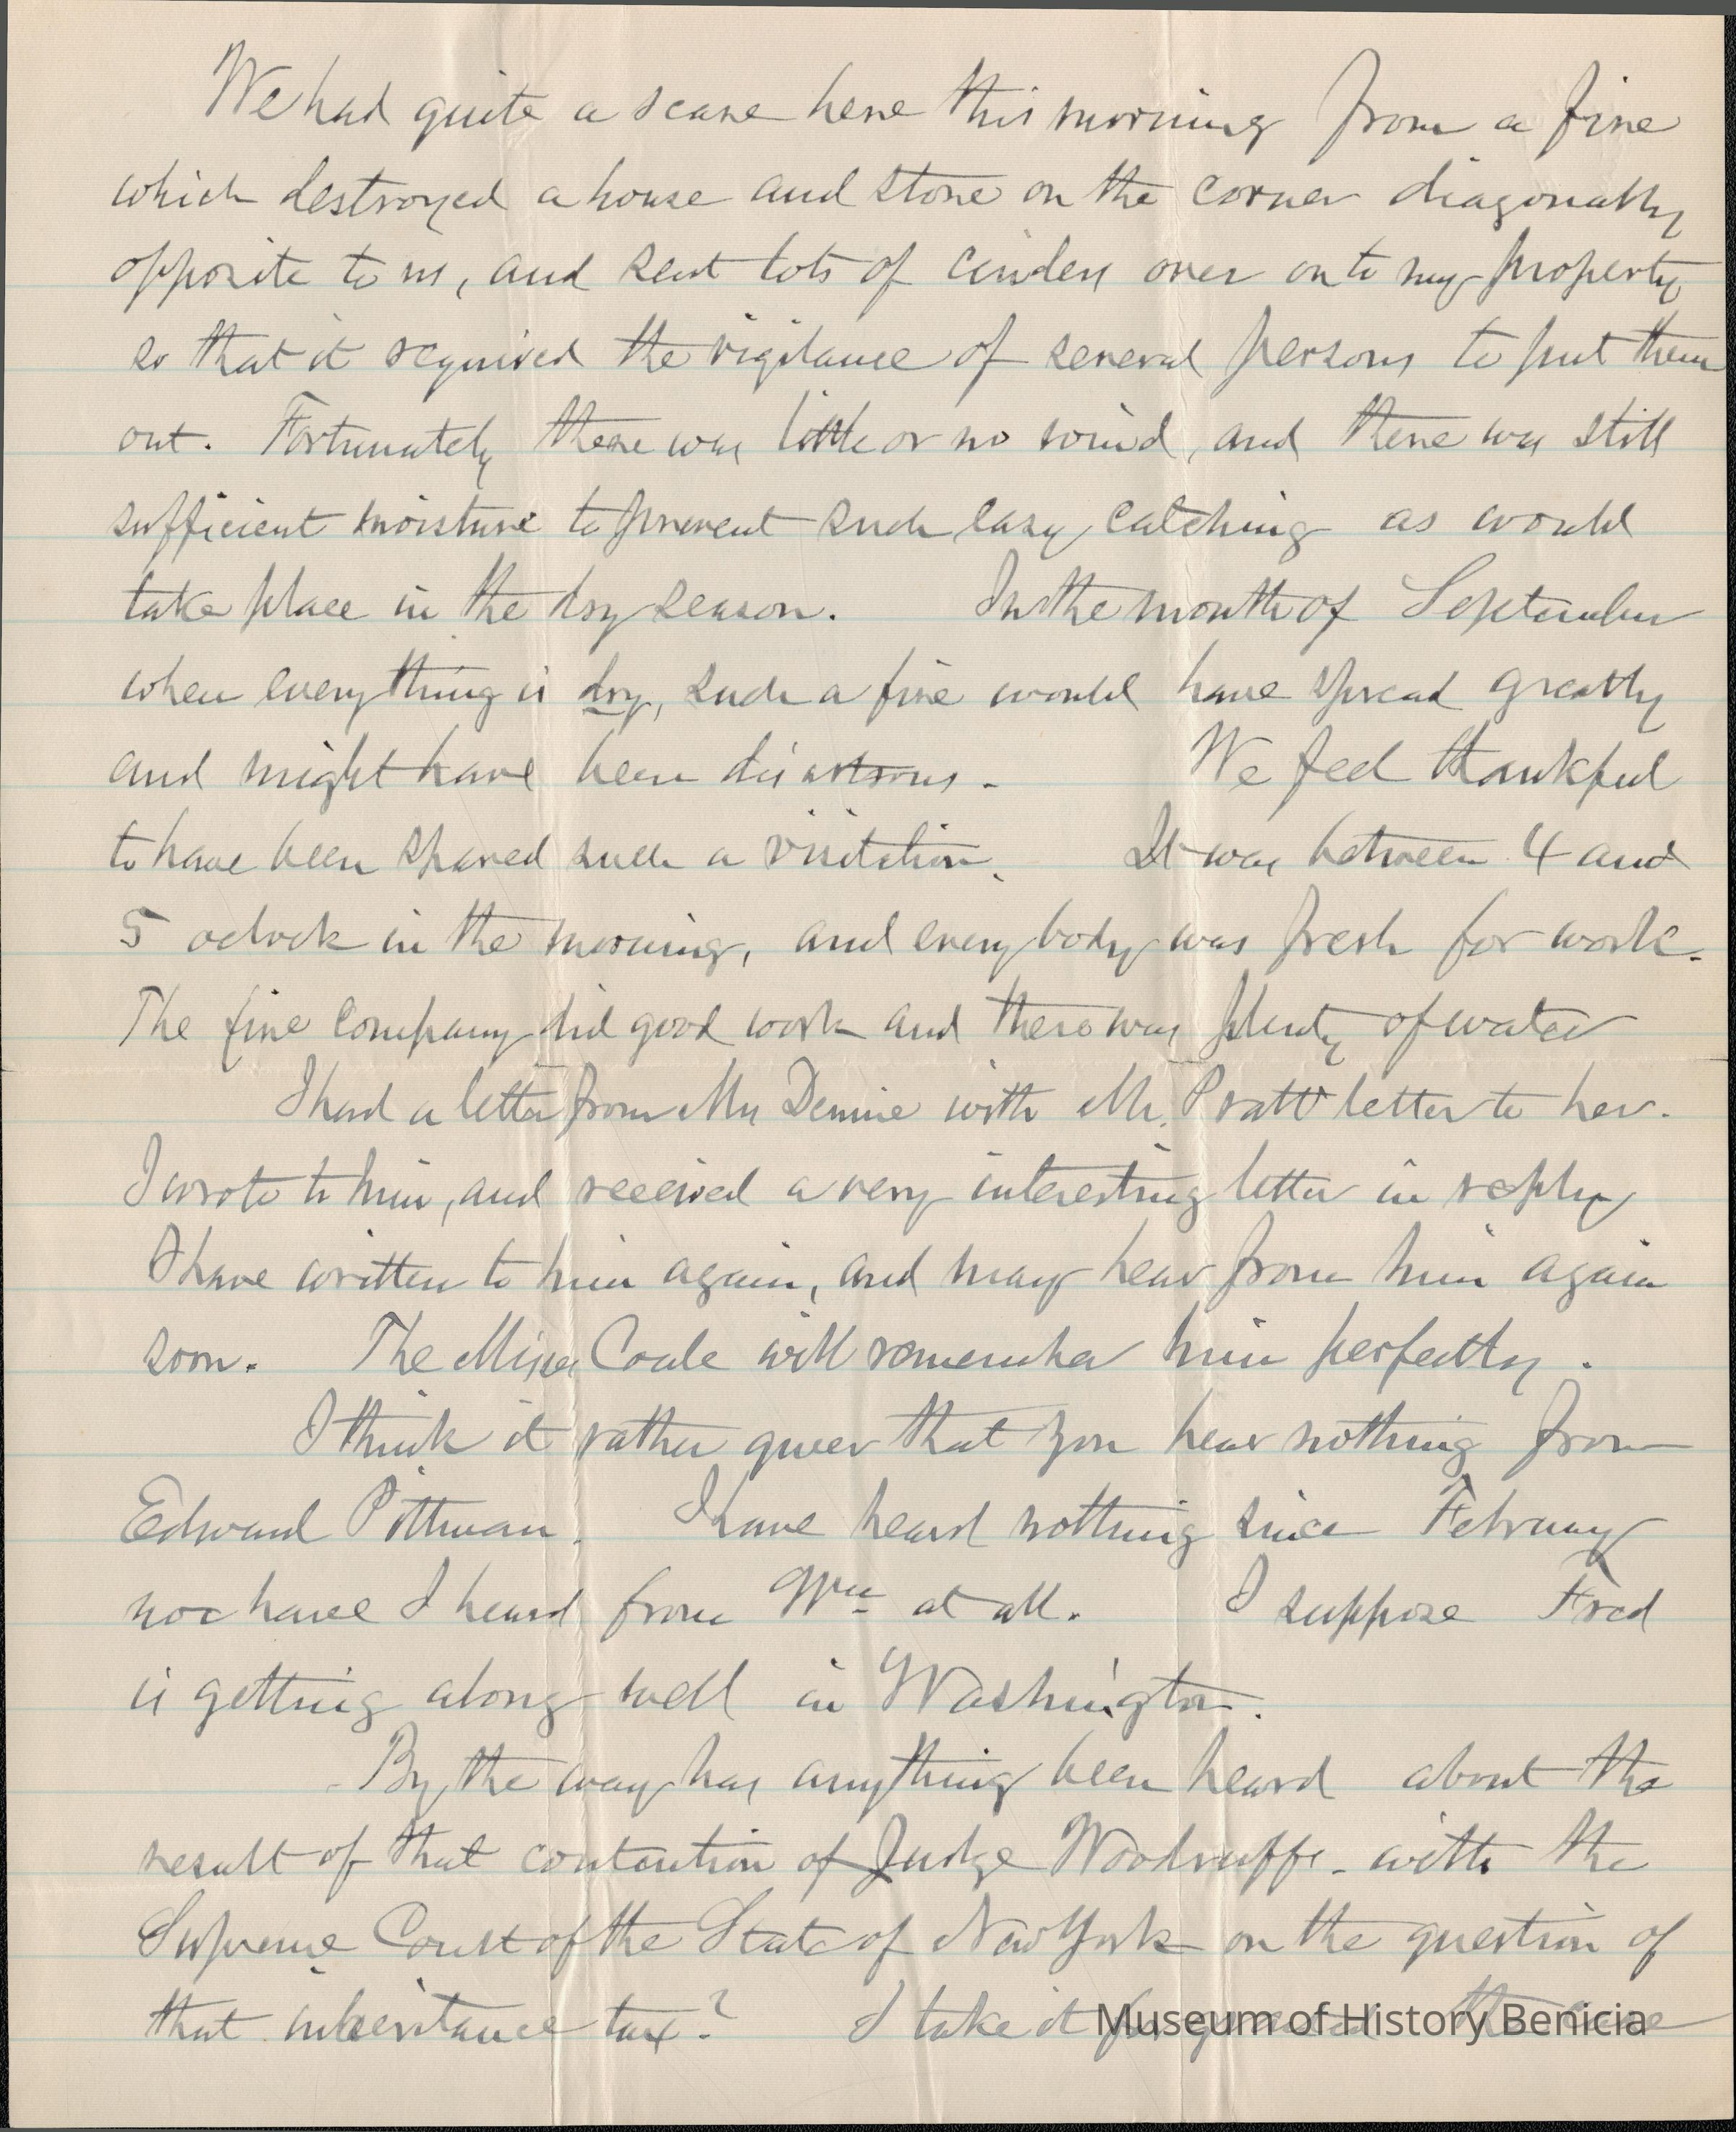 We had quite a scare here this morning from a fire
which destroyed a house and store on the corner diagonally
opposite to us, and sent lots of cinders over onto my property
so that it required the vigilance of several persons to put them
out. Fortunately there was little or no wind, and there was still
sufficient moisture to prevent such easy catching as would
take place in the dry season. In the month of September
when everything is dry, such a fire would have spread greatly
and might have been disastrous. We feel thankful
to have been spared such a visitation. It was between 4 and
5 oclock in the morning, and every body was fresh for work.
The fire company did good work and there was plenty of water
I had a letter from Mrs with Mr. Pratts letter to her.
I wrote to him, and received a very interesting letter in reply
I have written to him again, and may hear from him again
soon. The Misses Coale will remember him perfectly.
I think it rather queer that you hear nothing from
Edward Pittman. I have heard nothing since February
nor have I heard from Wm at all. I suppose Fred
is getting along well in Washington.
By the way has anything been heard about the
result of that contention of Judge Woodruffs with the
Supreme Court of the State of New York on the question of
that inheritance tax? I take it for granted the
Museum of History Benicia